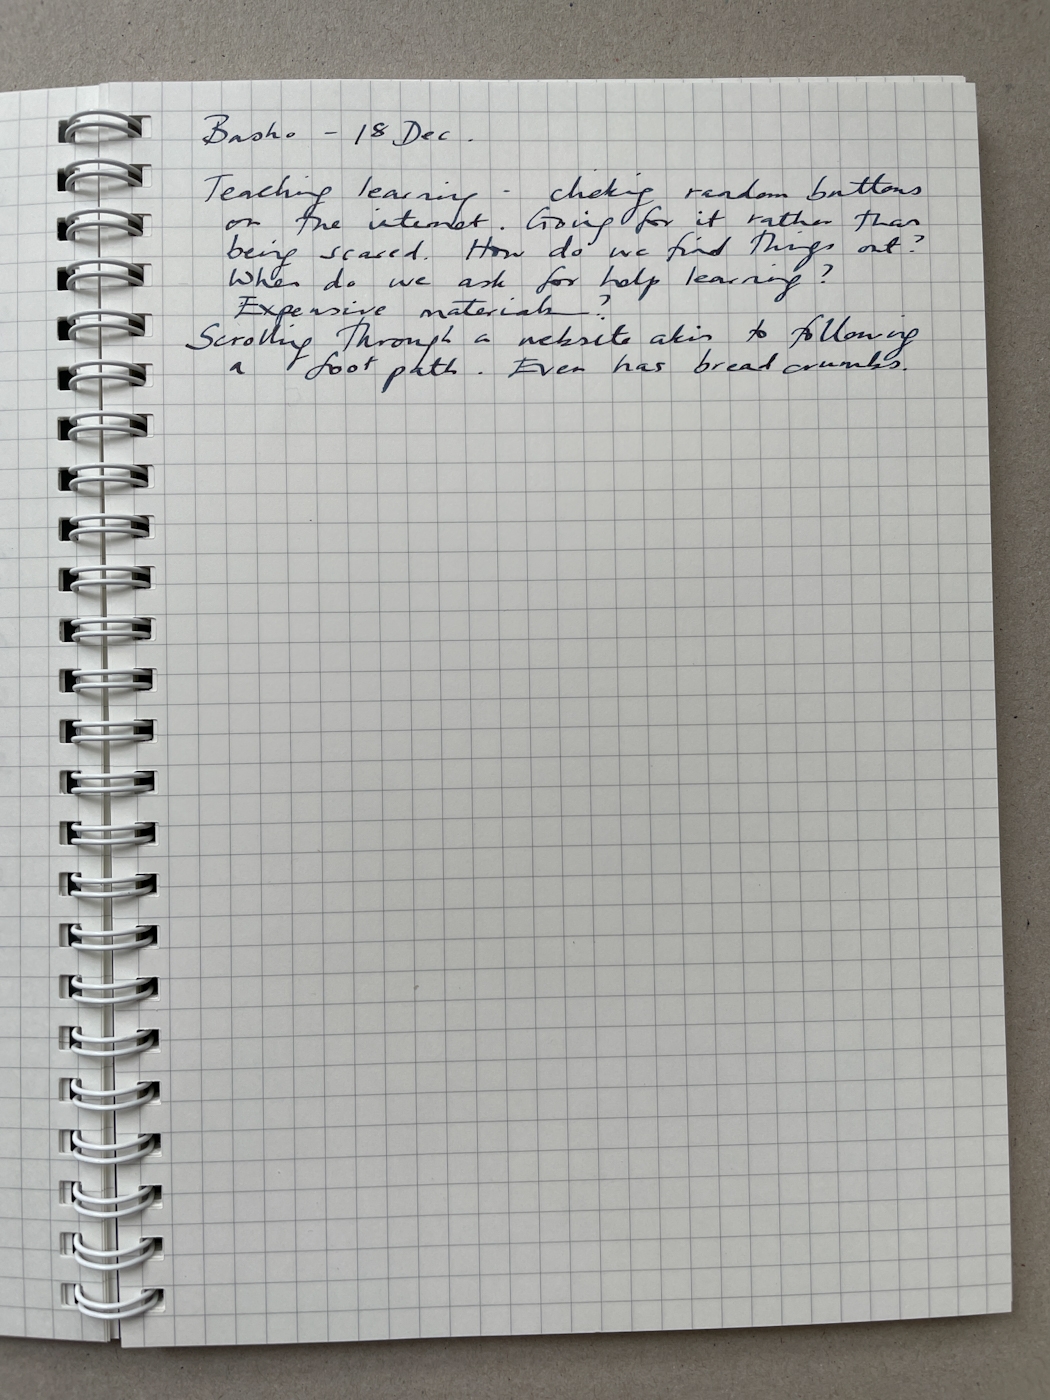 Basho - 18 Dec.
Teaching learning - clicking random buttons
on the internet. Going for it rather than
being scared. How do we find things out?
When do we ask for help learning?
Expensive materials?
Scrolling through a website akin to following
a foot path. Even has bread crumbs.